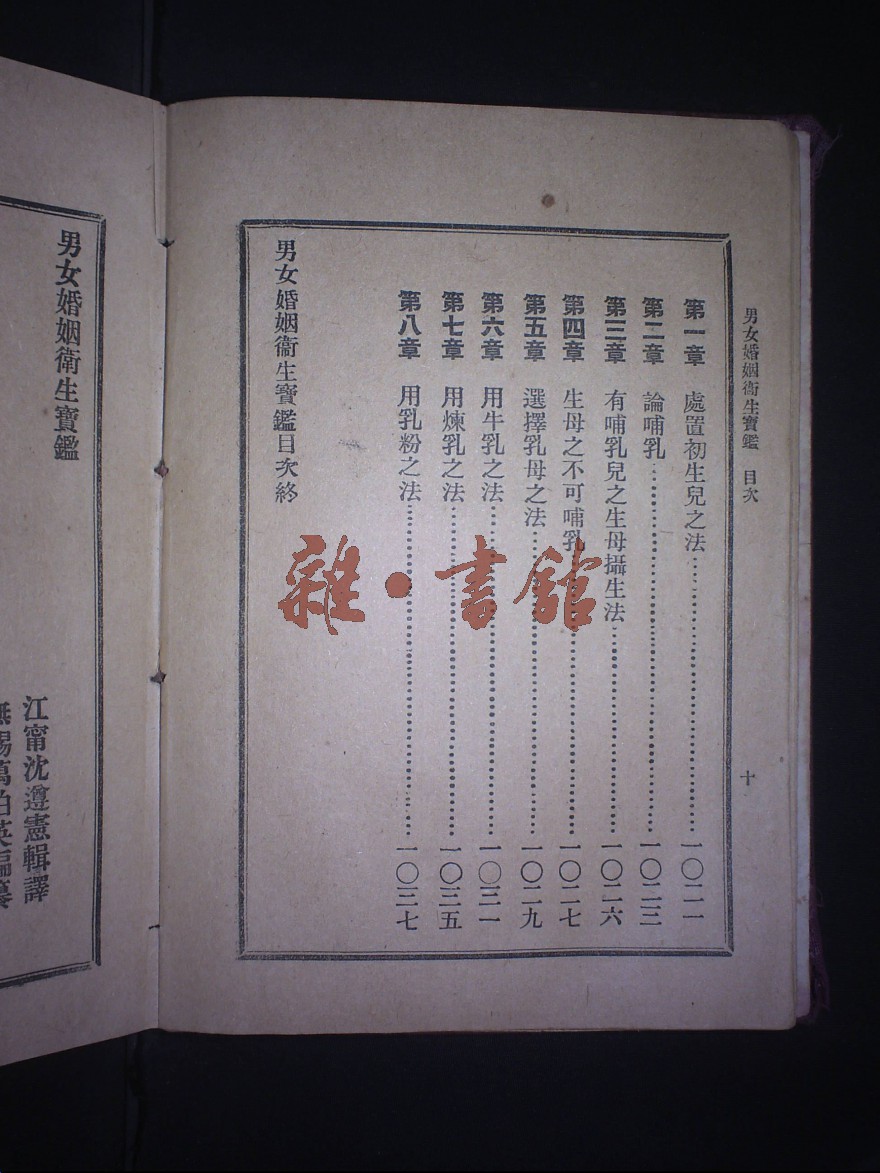 男女婚姻衛生寶鑑 目次
十
第一章 處置初生兒之法……一〇二一
第二章 論哺乳……一〇二三
第三章 有哺乳兒之生母攝生法……一〇二六
第四章 生母之不可哺乳……一〇二七
第五章 選擇乳母之法……一〇二九
第六章 用牛乳之法……一〇三一
第七章 用煉乳之法……一〇三五
第八章 用乳粉之法……一〇三七
男女婚姻衞生寶鑑目次終
雜·書館
男女婚姻衛生寶鑑
江甯沈遵憲輯譯